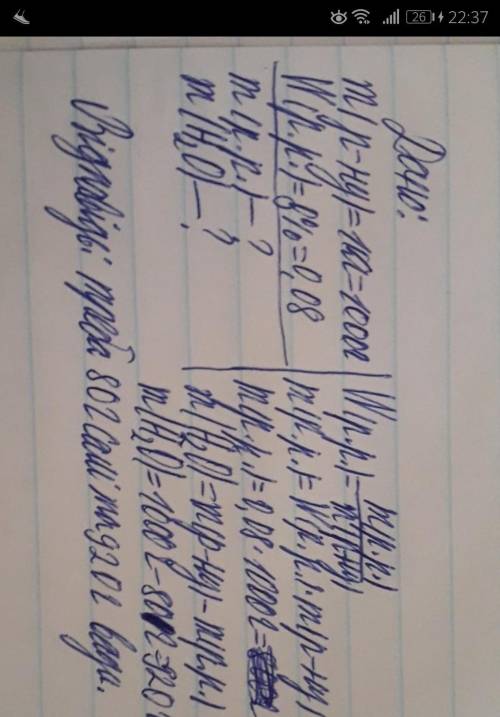 22:37
26
Дано:
m(р-ну)=1кг=1000г
W(р.р.)=8%=0,08
m(р.р.)—?
m(H₂O)—?
W(р.р.)=m(р.р.)/m(р-ну)
m(р.р.)=W(р.р.)·m(р-ну)
m(р.р.)=0,08·1000г=
m(H₂O)=m(р-ну)-m(р.р.)
m(H₂O)=1000г-80г=920г
Відповідь: треба 80г солі та 920г води.